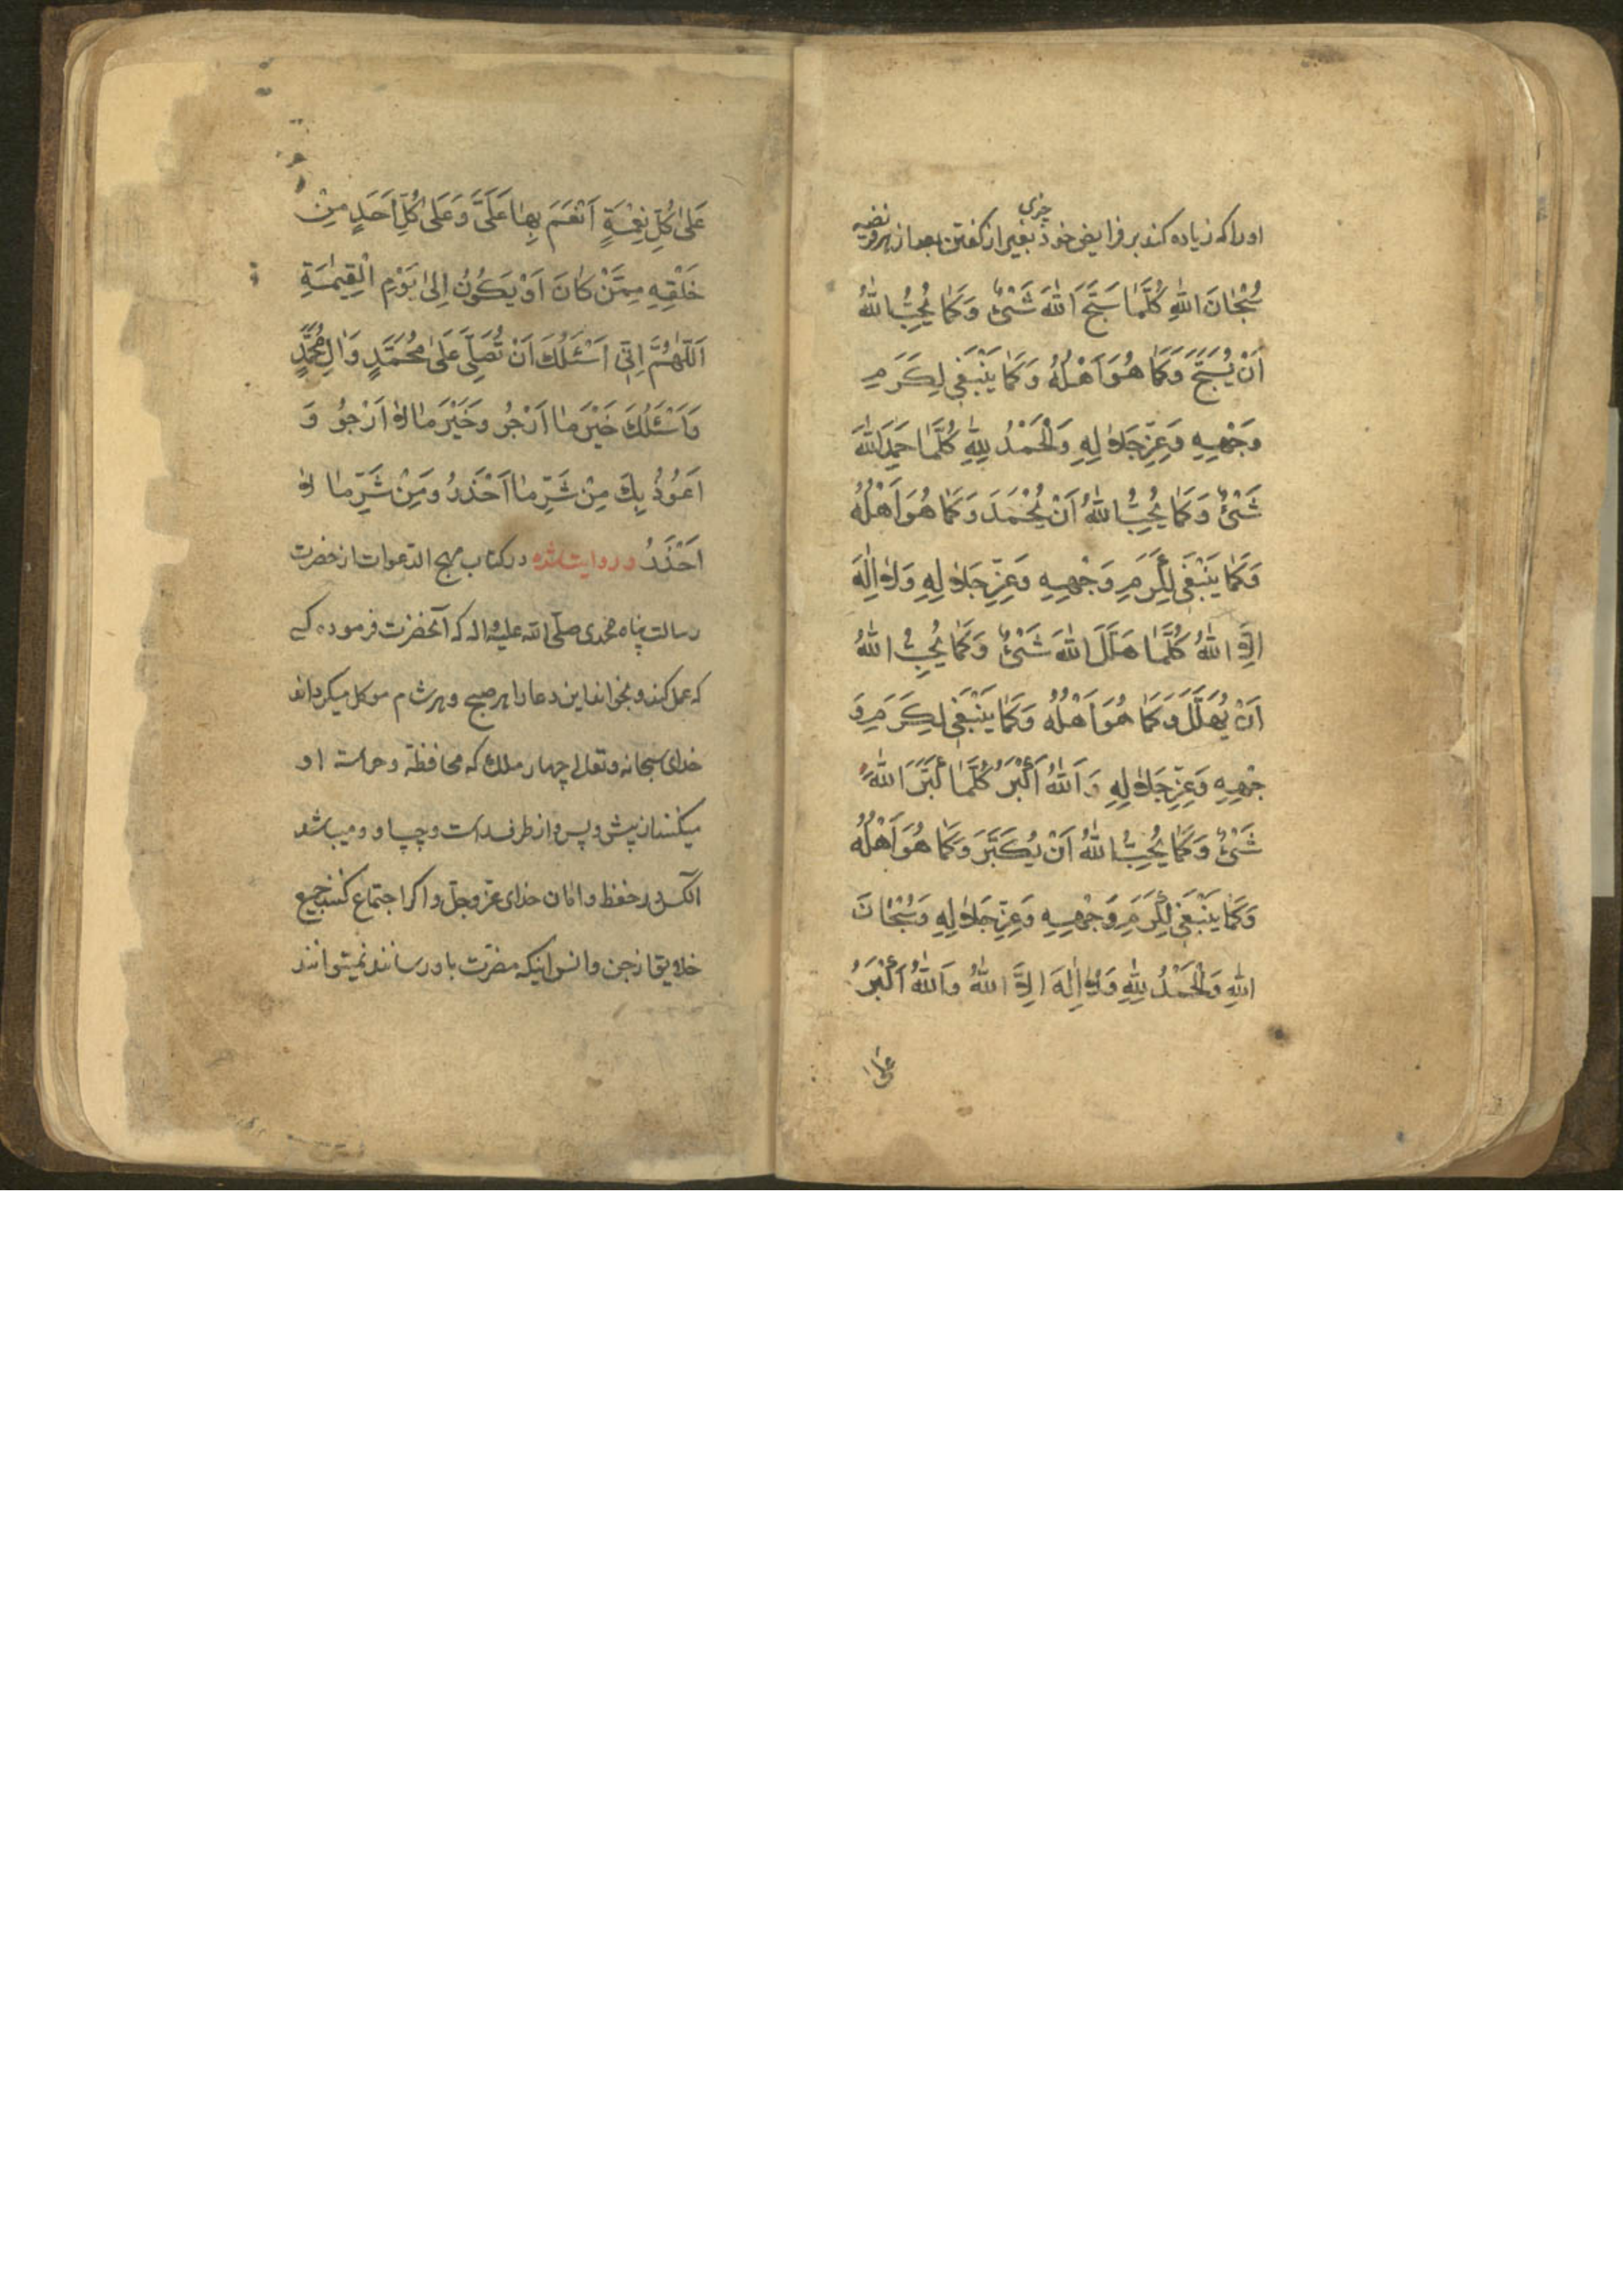 اوراکه زیاده کند بر فرایض خود چیزی بغیر از کفتن بعد از هر فریضه
سُبْحٰانَ اللّٰهِ كُلَّمٰا سَبَّحَ اَللّٰهَ شَىْءٌ وَكَمٰا يُحِبُّ اللّٰهُ
اَنْ يُسَبَّحَ وَكَمٰا هُوَ اَهْلُهُ وَكَمٰا يَنْبَغى لِكَرَمِ
وَجْهِهِ وَعِزِّ جَلاٰلِهِ وَالْحَمْدُ لِلّٰهِ كُلَّمٰا حَمِدَ اللّٰهَ
شَىْءٌ وَكَمٰا يُحِبُّ اللّٰهُ اَنْ يُحْمَدَ وَكَمٰا هُوَ اَهْلُهُ
وَكَمٰا يَنْبَغى لِكَرَمِ وَجْهِهِ وَعِزِّ جَلاٰلِهِ وَلاٰ اِلٰهَ
اِلاَّ اللّٰهُ كُلَّمٰا هَلَّلَ اللّٰهَ شَىْءٌ وَكَمٰا يُحِبُّ اللّٰهُ
اَنْ يُهَلَّلَ وَكَمٰا هُوَ اَهْلُهُ وَكَمٰا يَنْبَغى لِكَرَمِ وَ
جْهِهِ وَعِزِّ جَلاٰلِهِ وَ اَللّٰهُ اَكْبَرُ كُلَّمٰا كَبَّرَ اللّٰهَ
شَىْءٌ وَكَمٰا يُحِبُّ اللّٰهُ اَنْ يُكَبَّرَ وَكَمٰا هُوَ اَهْلُهُ
وَكَمٰا يَنْبَغى لِكَرَمِ وَجْهِهِ وَعِزِّ جَلاٰلِهِ وَسُبْحٰانَ
اللّٰهِ وَالْحَمْدُ لِلّٰهِ وَلاٰ اِلٰهَ اِلاَّ اللّٰهُ وَاللّٰهُ اَكْبَرُ
عَلىٰ
عَلىٰ كُلِّ نِعْمَةٍ اَنْعَمَ بِهٰا عَلَىَّ وَعَلىٰ كُلِّ اَحَدٍ مِنْ
خَلْقِهِ مِمَّنْ كٰانَ اَوْ يَكُونُ اِلىٰ يَوْمِ الْقِيٰمَةِ
اَللّٰهُمَّ اِنّى اَسْئَلُكَ اَنْ تُصَلِّىَ عَلىٰ مُحَمَّدٍ وَاٰلِ مُحَمَّدٍ
وَاَسْئَلُكَ خَيْرَ مٰا اَرْجُو وَخَيْرَ مٰا لاٰ اَرْجُو وَ
اَعُوذُ بِكَ مِنْ شَرِّ مٰا اَحْذَرُ وَمِنْ شَرِّ مٰا لاٰ
اَحْذَرُ و روایت شده در کتاب مهج الدّعوات از حضرت
رسالت پناه محمدی صلّی اللّه علیه واله که آنحضرت فرموده کسی
که عمل کند و بخواند این دعا را هر صبح و هر شام موکل میکرداند
خدای سبحانه و تعالی چهار ملك که محافظة و حراسة او
میکنند از پیش و پس و از طرف راست و چپ او و میباشد
آنکس در حفظ و امان خدای عزّ و جلّ و اکر اجتماع کنند جمیع
خلایق از جن و انس اینکه مضرّت باو رسانند نمیتوانند